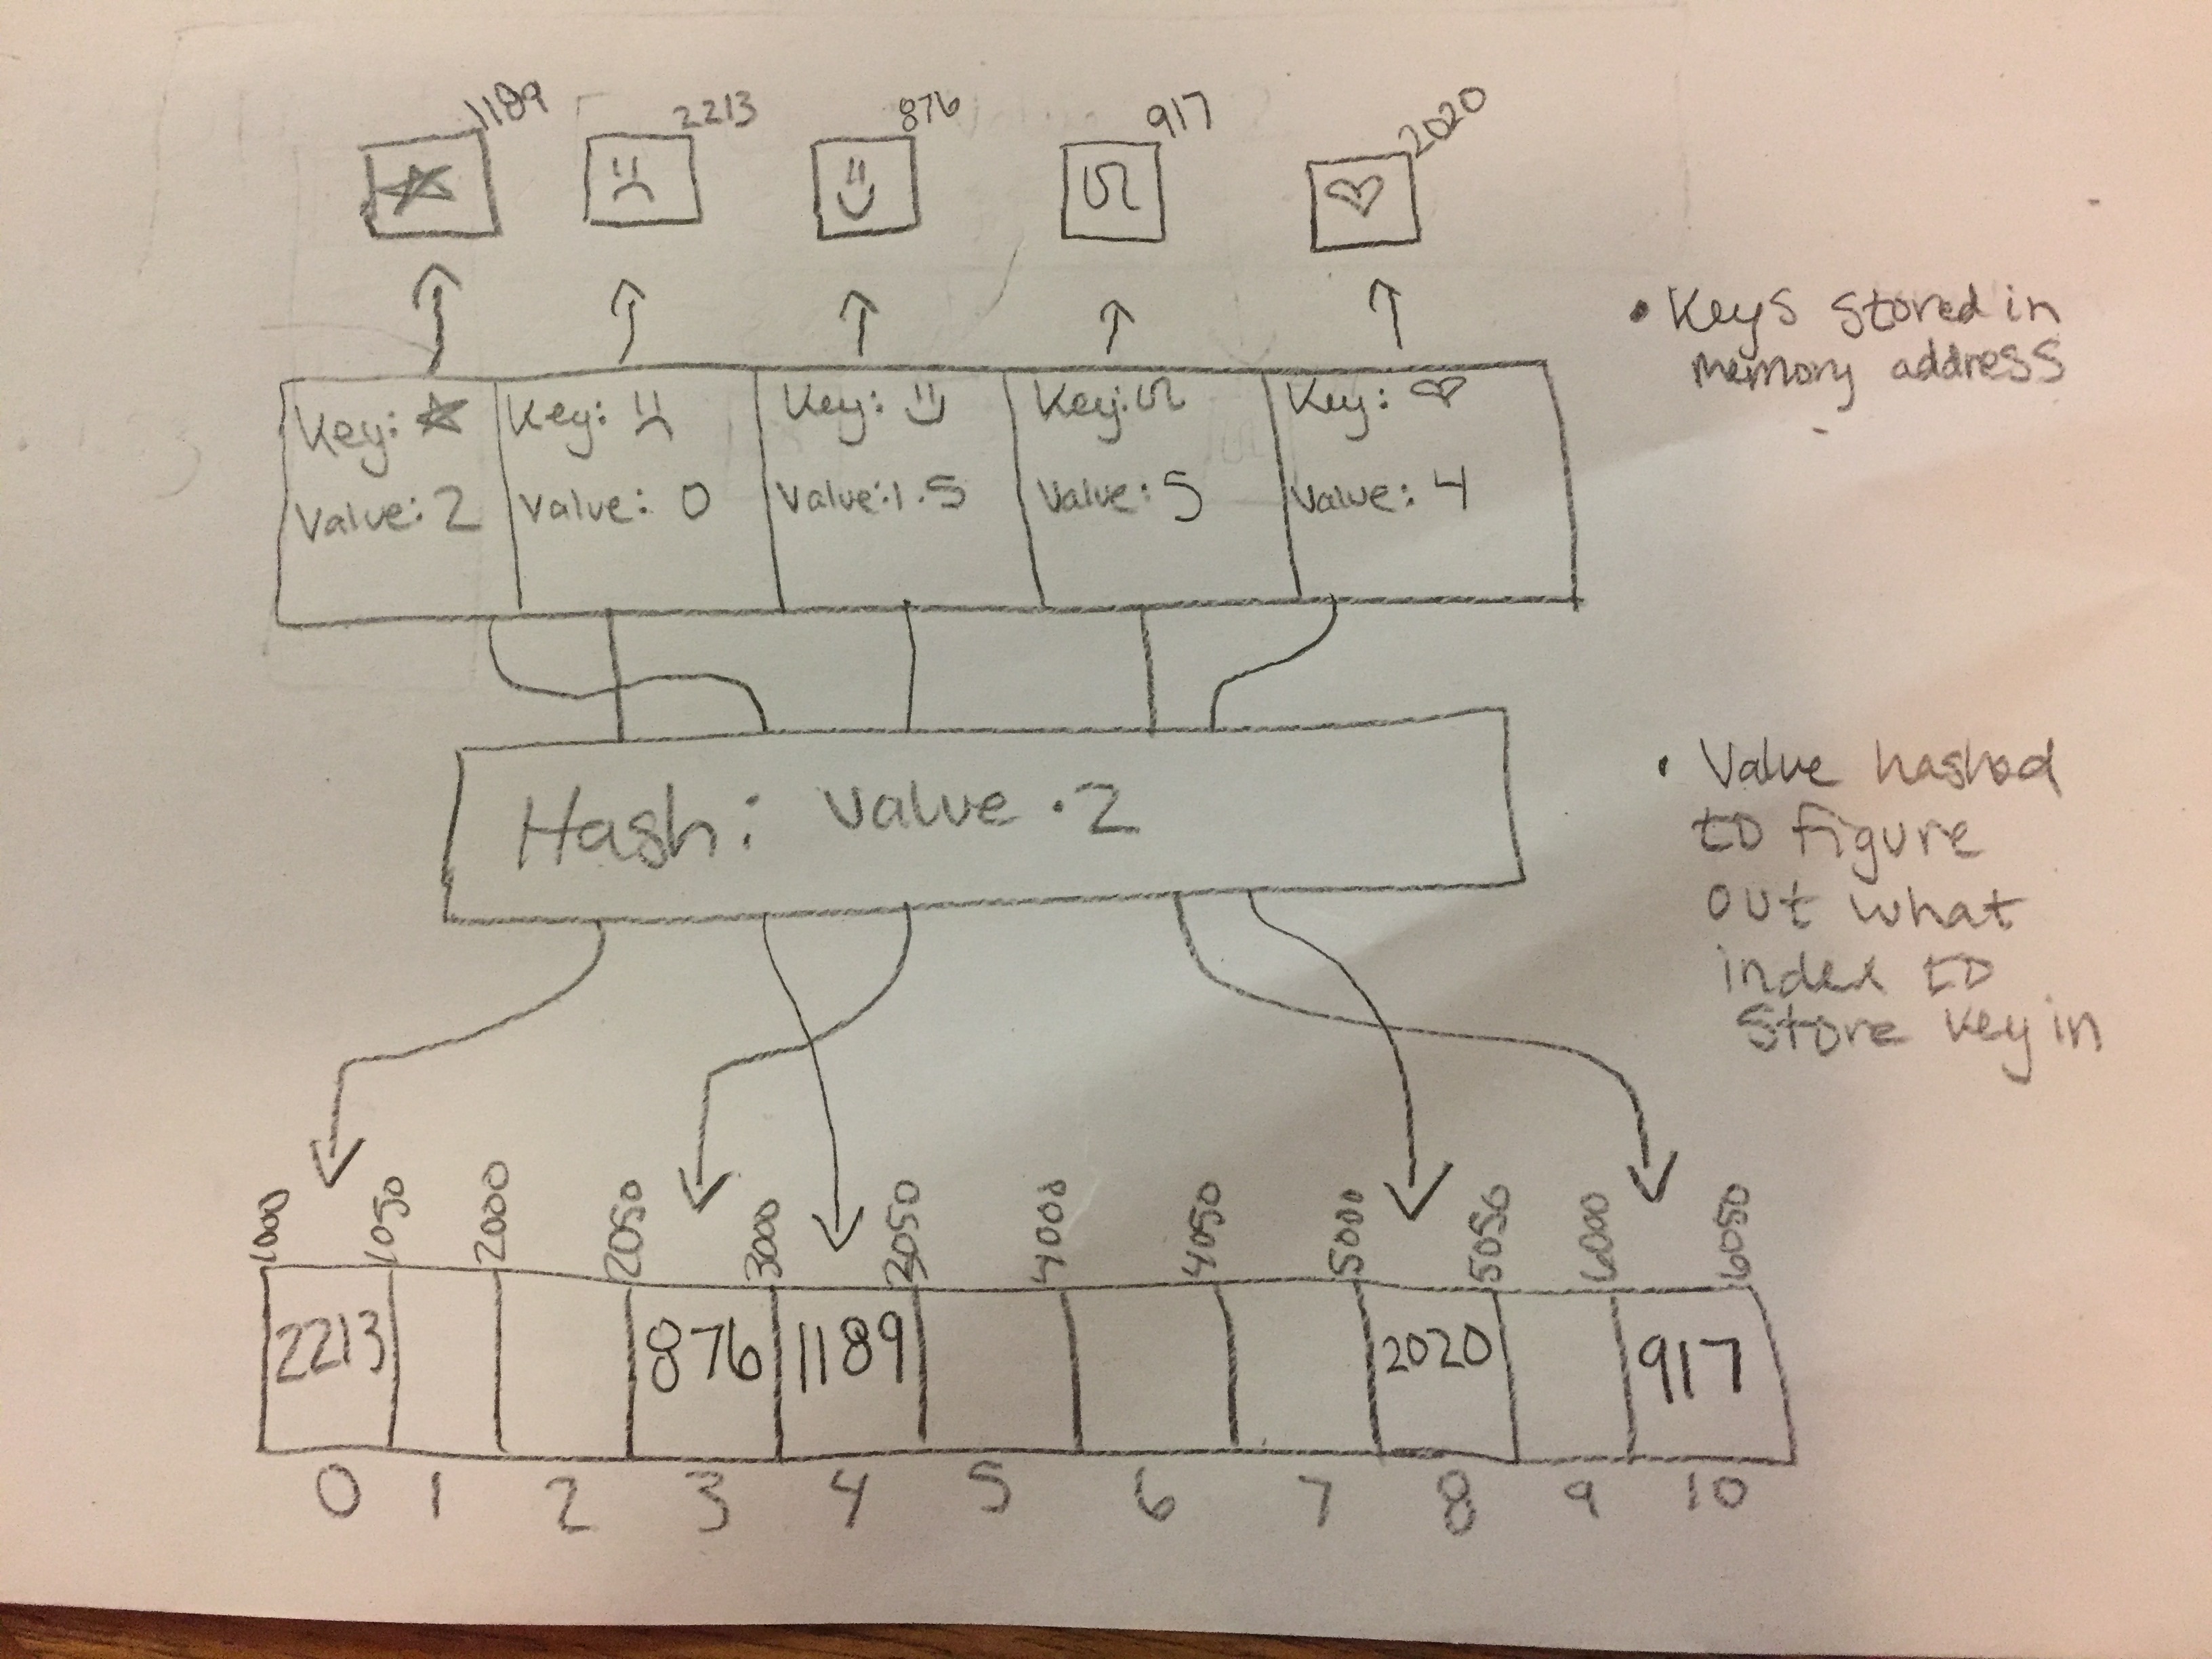 1189
2213
876
917
2020
• Keys stored in
memory address
Key: ☆
Value: 2
Key: ☹
Value: 0
Key: ☺
Value: 1.5
Key: S
Value: 5
Key: ♡
Value: 4
Hash: value · 2
• Value hashed
to figure
out what
index to
store key in
1000 1050 2000 2050 3000 3050 4000 4050 5000 5050 6000 6050
2213 876 1189 2020 917
0 1 2 3 4 5 6 7 8 9 10